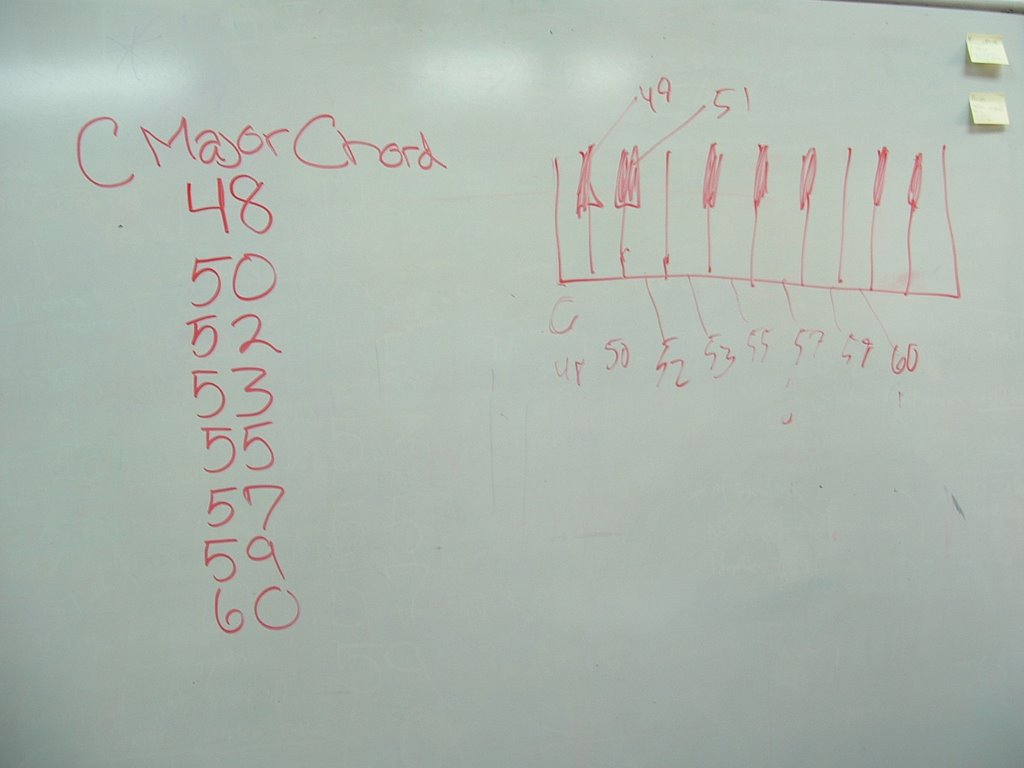 C Major Chord
48
50
52
53
55
57
59
60
49 51
C
48 50 52 53 55 57 59 60